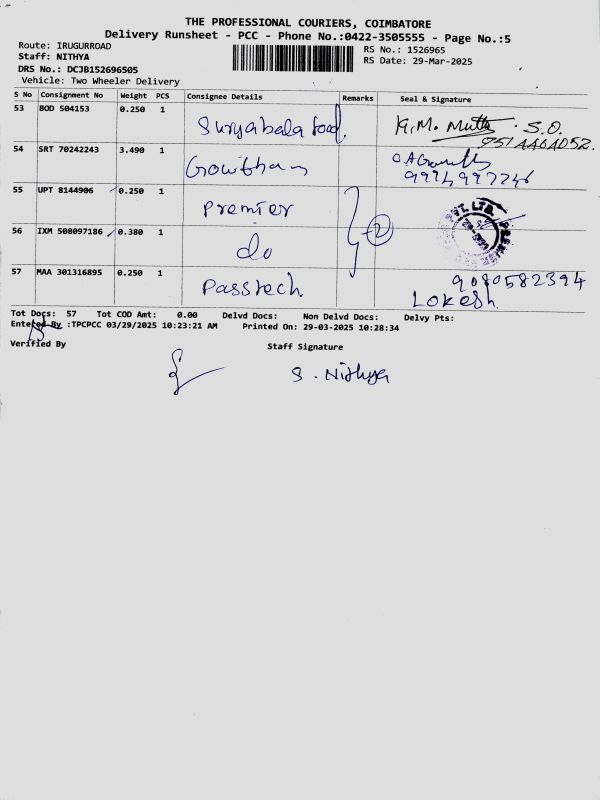 THE PROFESSIONAL COURIERS, COIMBATORE
Delivery Runsheet - PCC - Phone No.:0422-3505555 - Page No.:5
Route: IRUGURROAD
RS No.: 1526965
Staff: NITHYA
RS Date: 29-Mar-2025
DRS No.: DCJB152696505
Vehicle: Two Wheeler Delivery
S No Consignment No Weight PCS Consignee Details Remarks Seal & Signature
53 BOD 504153 0.250 1 Suryabala food. K.M. Muttu . S.O.
54 SRT 70242243 3.490 1 Gowtham
55 UPT 8144906 0.250 1 Premier
56 IXM 508097186 0.380 1 do 2
57 MAA 301316895 0.250 1 Passtech 9080582394
Lokesh
Tot Docs: 57 Tot COD Amt: 0.00 Delvd Docs: Non Delvd Docs: Delvy Pts:
Entered By :TPCPCC 03/29/2025 10:23:21 AM Printed On: 29-03-2025 10:28:34
Verified By Staff Signature
S. Nithya